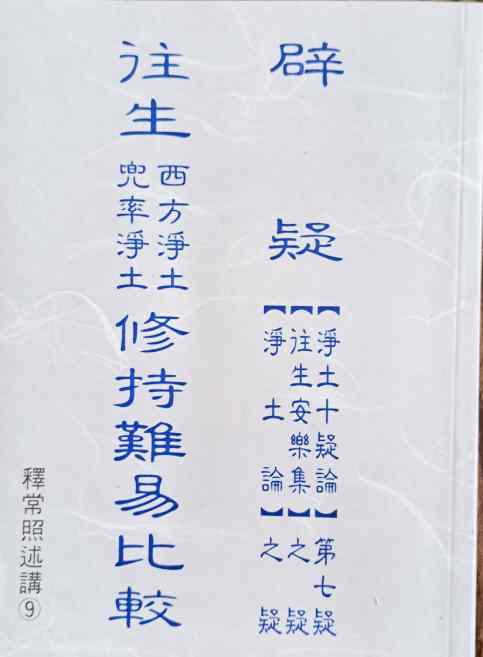 辟疑
【淨土十疑論】第七疑
【往生安樂集】之疑
【淨土論】之疑
往生
西方淨土
兜率淨土
修持難易比較
釋常照述講⑨